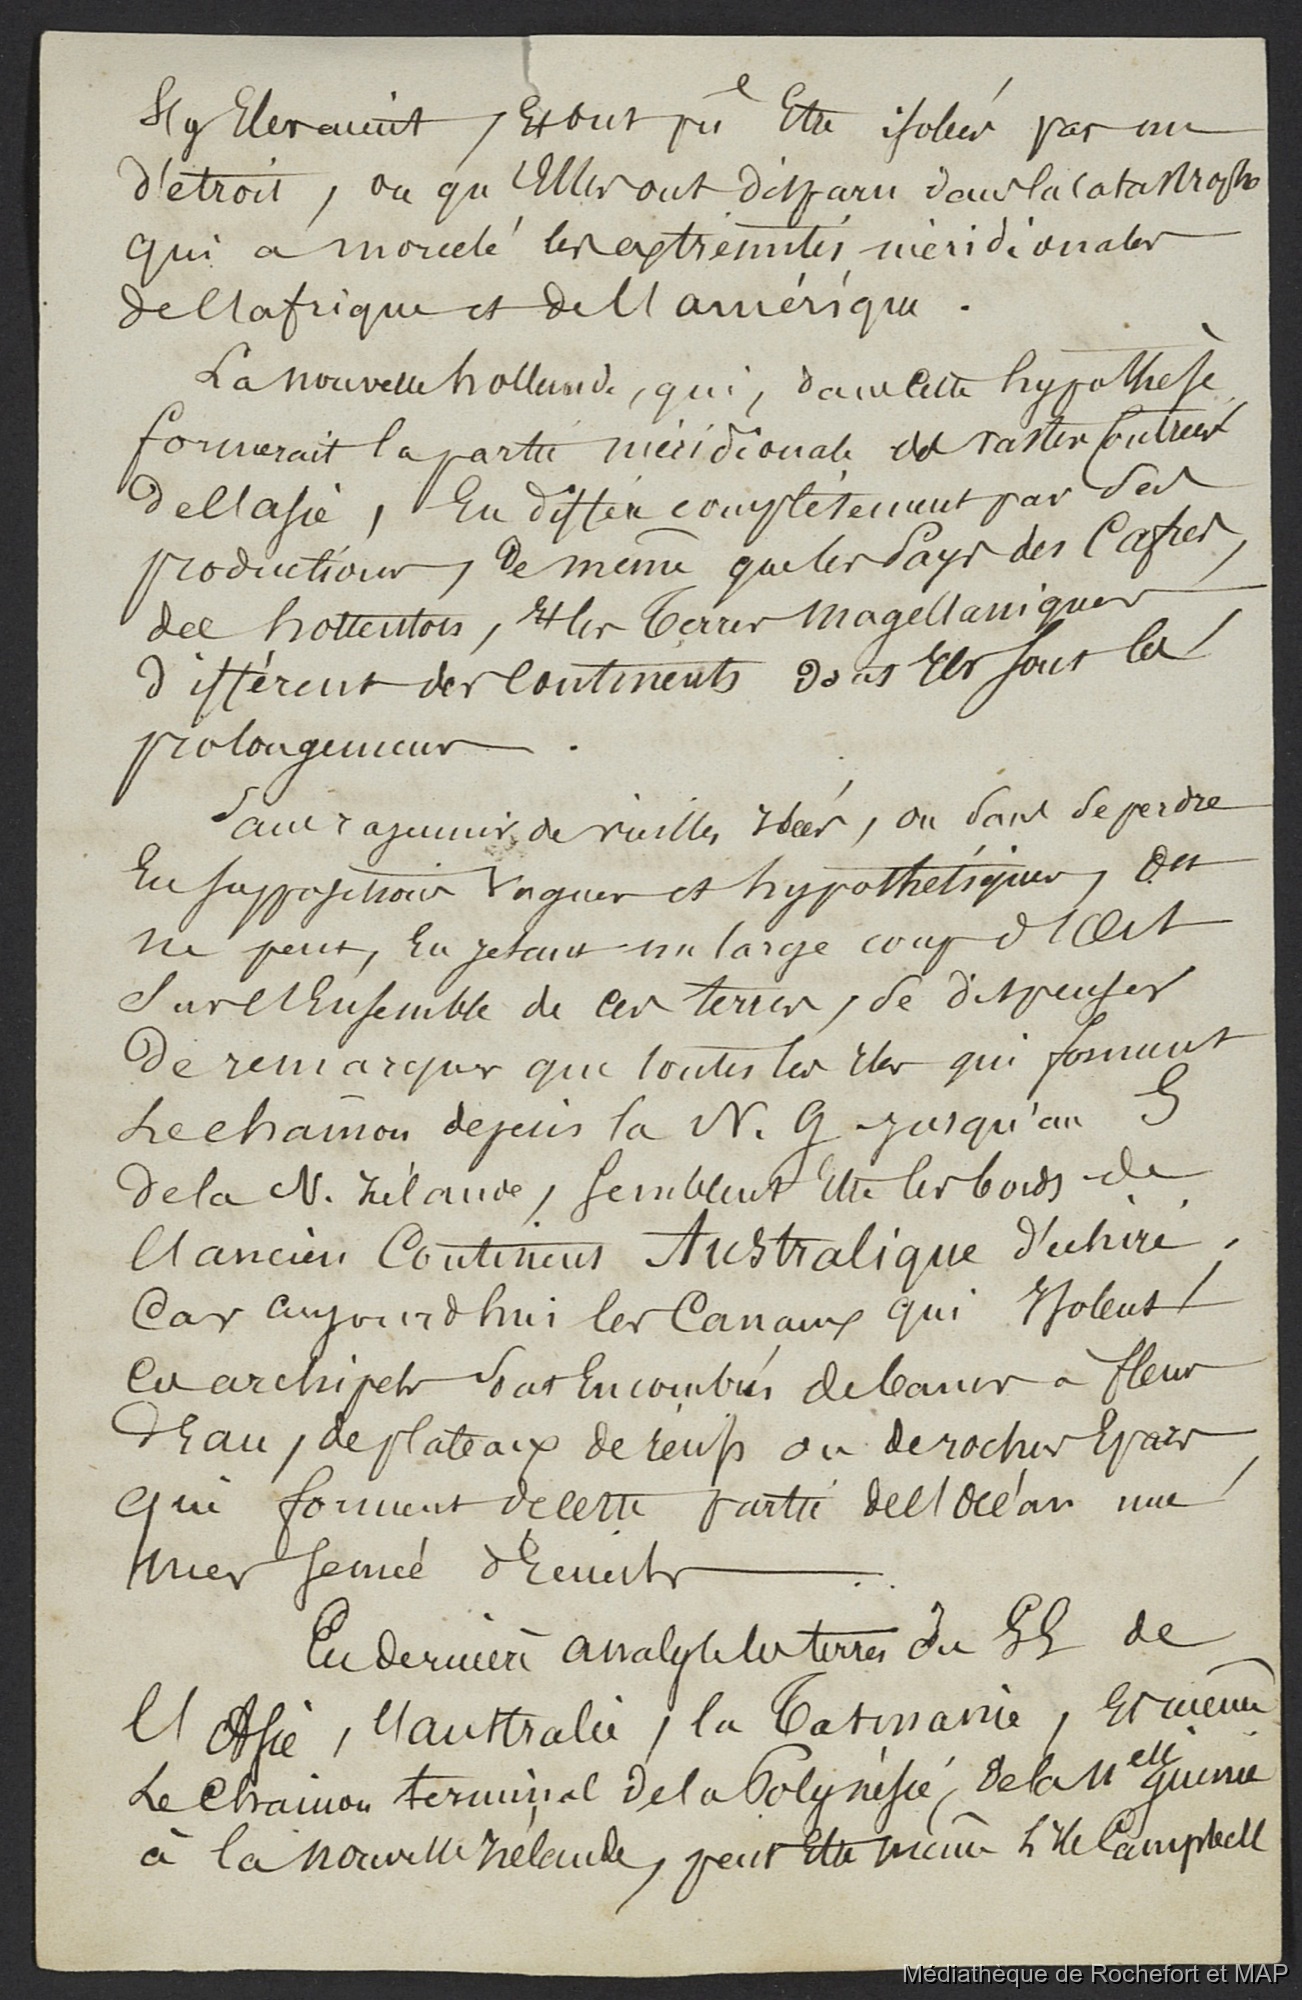 S'y Eleraient, Et ont pû Etre isolées par un
d'étroit, ou qu'Elles ont disparu dans la catastrophe
qui a morcelé les extrémités méridionales
de l'afrique et de l'amérique.
La nouvelle hollande, qui, dans Cette hypothèse
formerait la partie méridionale de vastes Contrées
de l'asie, En diffère complétement par Ses
productions, De même que les Pays des Cafres,
des hottentots, Et les Terres Magellaniques
diffèrent des Continents dont Elles sont les
prolongemens.
Sans rajeunir de vieilles Idées, ou sans se perdre
En suppositions Vagues et hypothétiques, On
ne peut, En jetant un large coup d'Oeil
Sur l'Ensemble de Ces terres, Se dispenser
De remarquer que toutes les Iles qui forment
Le chaînon depuis la N. G jusqu'au S
de la N. Zélande, semblent Etre les bords de
l'ancien Continent Australique déchiré,
Car aujourd'hui les Canaux qui Isolent
Ces archipels Sont Encombrés de bancs à fleur
d'Eau, de plateaux de récifs ou de rochers Epars
qui forment de cette partie de l'Océan une
mer semée d'Ecueils.
En dernière analyse les terres du SE de
l'Asie, l'australie, la Tasmanie, Et même
Le Chainon terminal de la Polynésie, de la Nelle guinée
à la nouvelle Zélande, peut Etre même L'Ile Campbell
Médiathèque de Rochefort et MAP